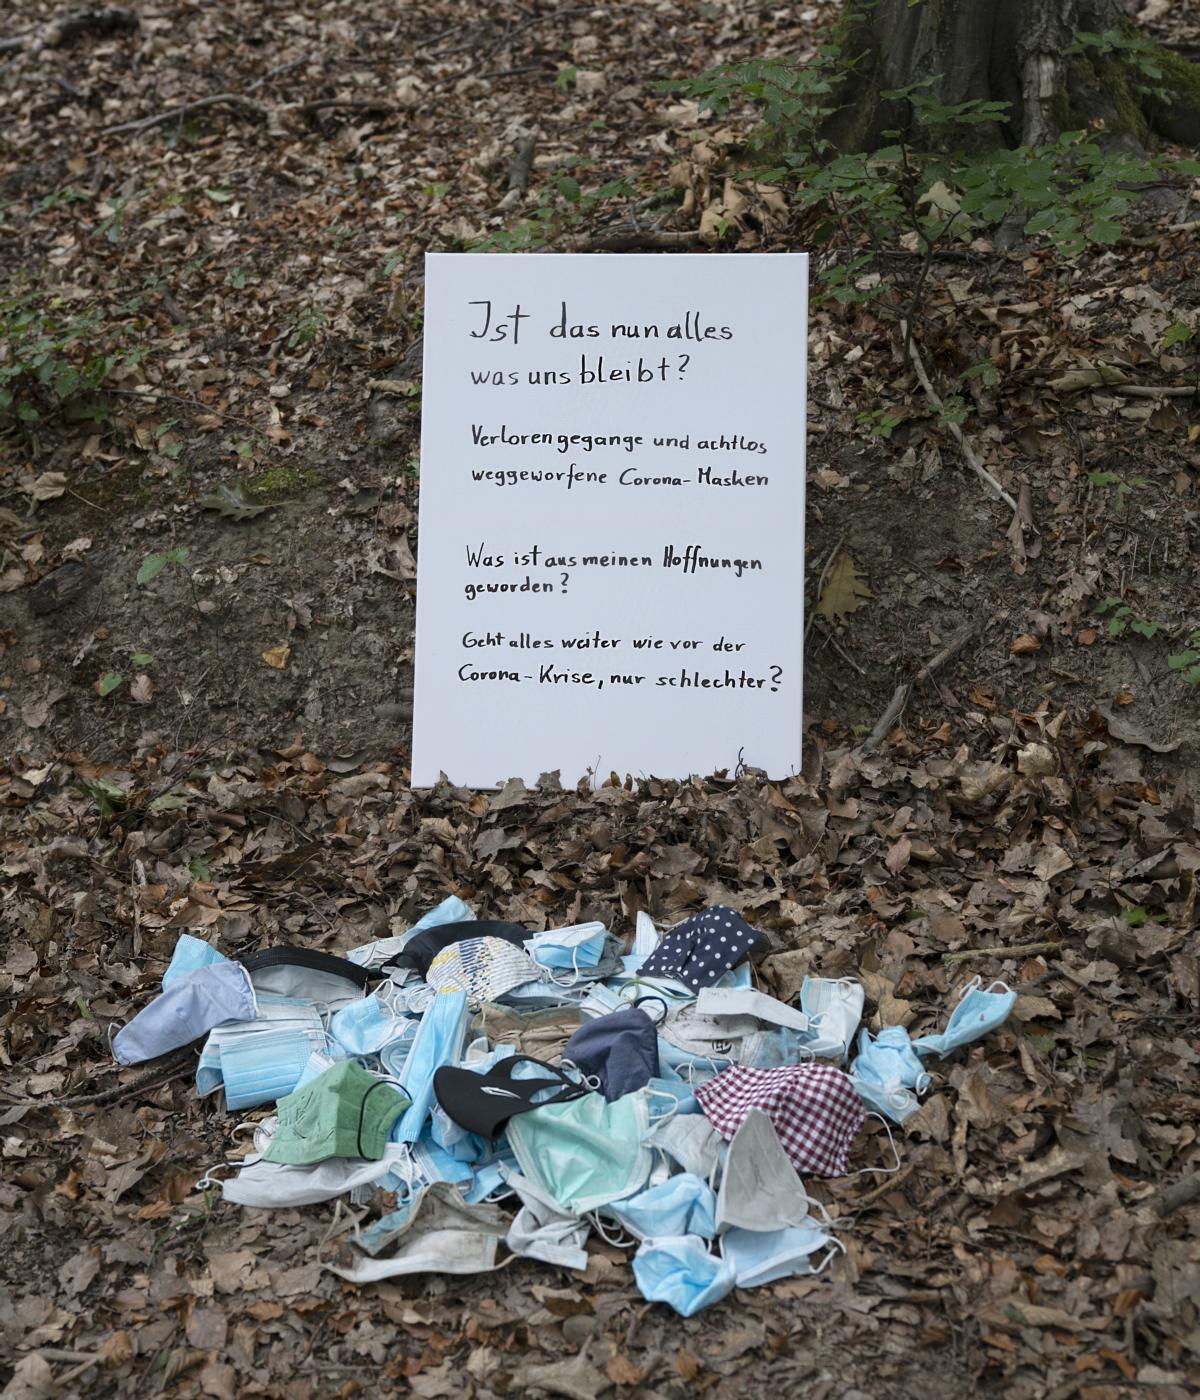 Ist das nun alles
was uns bleibt?
Verloren gegange und achtlos
weggeworfene Corona-Masken
Was ist aus meinen Hoffnungen
geworden?
Geht alles weiter wie vor der
Corona-Krise, nur schlechter?